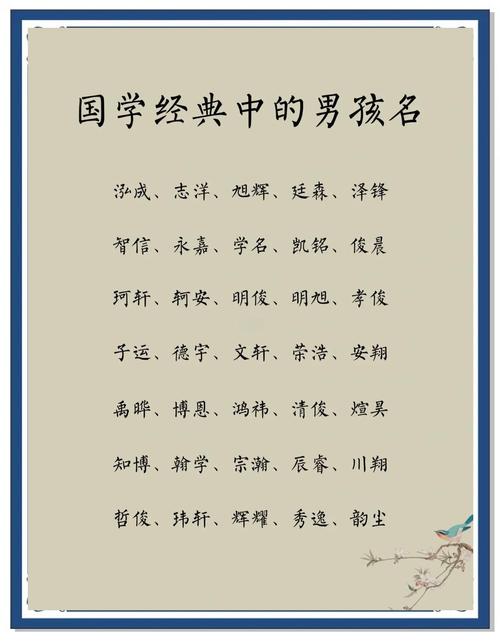 国学经典中的男孩名
泓成、志洋、旭辉、廷森、泽锋
智信、永嘉、学名、凯铭、俊晨
珂轩、轲安、明俊、明旭、孝俊
子运、德宇、文轩、荣浩、安翔
禹晔、博恩、鸿祎、清俊、煊昊
知博、翰学、宗瀚、辰睿、川翔
哲俊、玮轩、辉耀、秀逸、韵尘